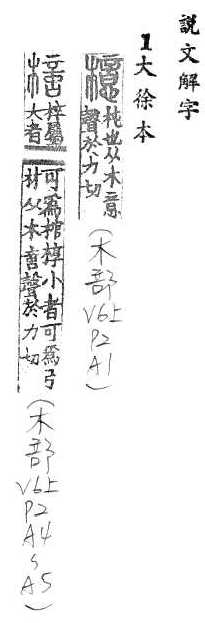 說文解字
1大徐本
檍杶也从木意
聲於力切
(木部V6上P2A1)
梓屬
大者
可爲棺椁小者可爲弓
材从木聲於力切
(木部V6上P2A4~A5)